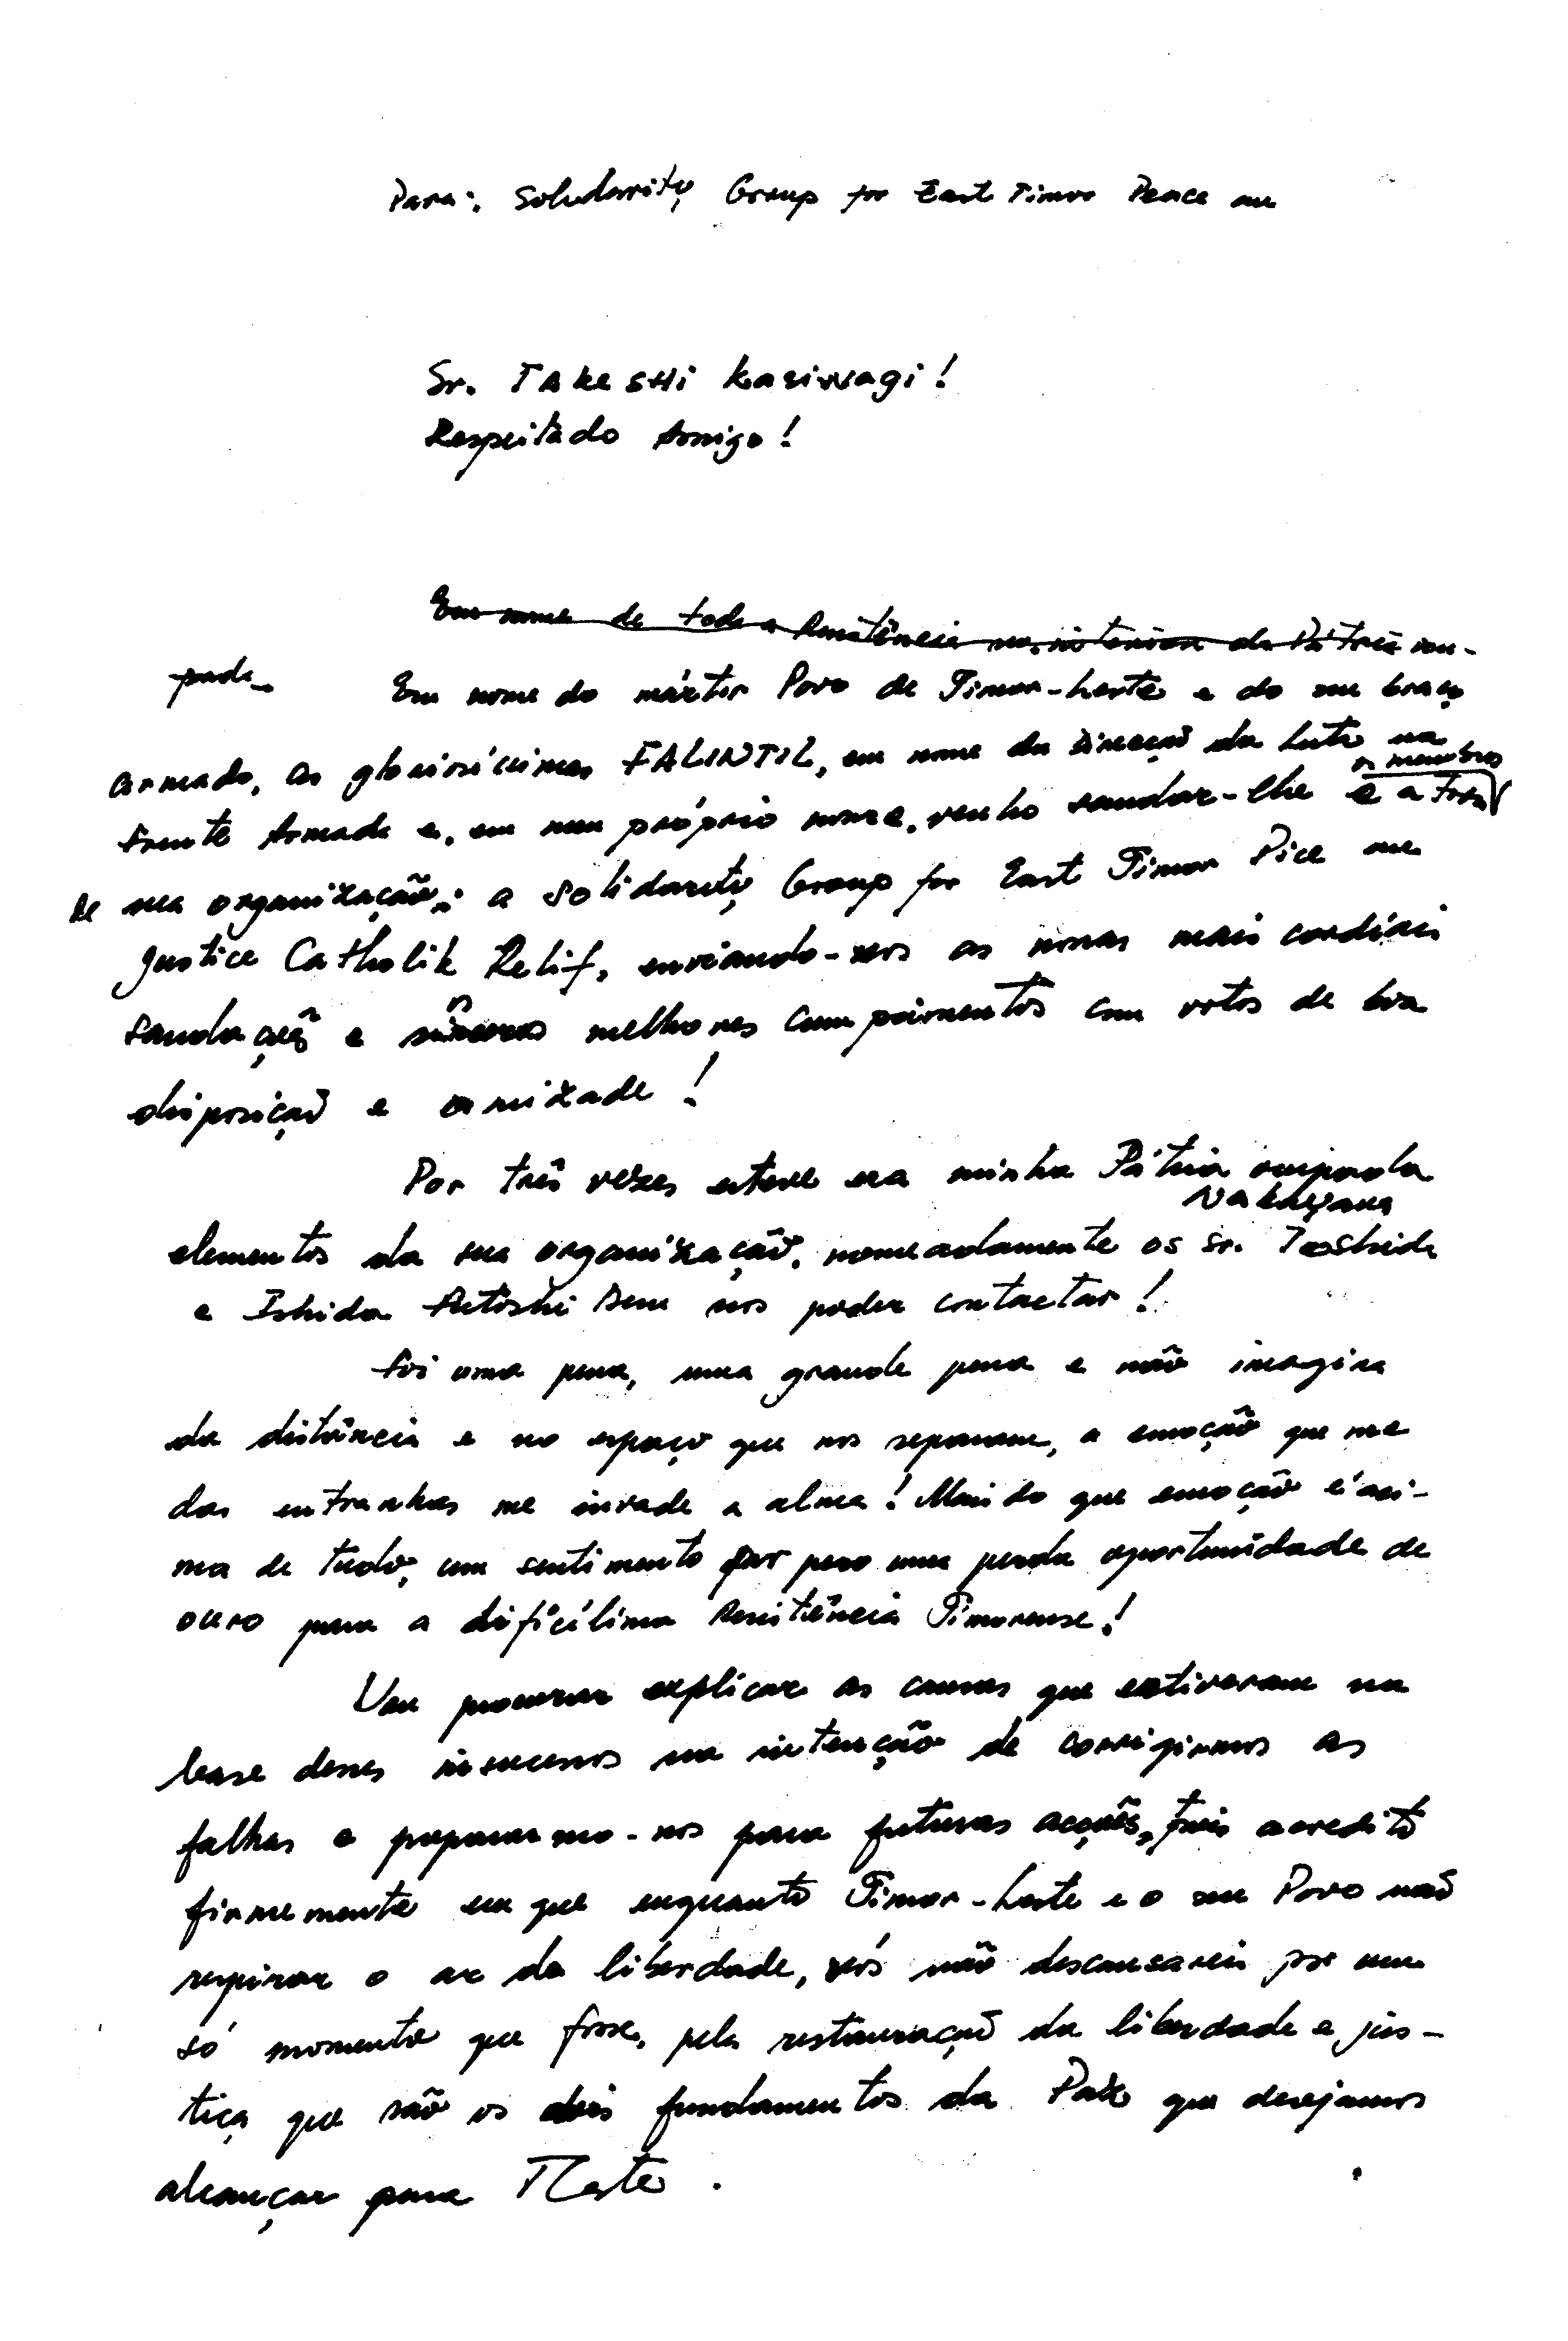 Para: Solidarity Group for East Timor Peace an
Sr. TAKESHi Kasiwagi!
Respeitado Amigo!
Em nome de toda a Resistência no interior da Pátria ocu-
pada
Em nome do mártir Povo de Timor-Leste e do seu braço
armado, as gloriosíssimas FALINTIL, em nome da Direcção da Luta na
Frente Armada e, em meu próprio nome, venho saudar-lhe e a todos
os membros
de sua organização: a Solidarity Group for East Timor Pice and
Justice Catholik Relif, enviando-vos as nossas mais cordiais
saudações e os melhores cumprimentos com votos de boa
disposição e amizade!
Por três vezes esteve na minha Pátria ocupada
elementos da sua organização, nomeadamente os sr. Toshide
Nakayama
e Ishida sem nos poder contactar!
Foi uma pena, uma grande pena e não imagina
da distância e no espaço que nos separam, a emoção que me
das entranhas me invade a alma! Mais do que emoção é aci-
ma de tudo, um sentimento por uma perda oportunidade de
ouro para a dificílima Resistência Timorense!
Vou procurar explicar as causas que estiveram na
base desses insucessos na intenção de corrigirmos as
falhas e prepararmo-nos para futuras acções, pois acredito
firmemente em que enquanto Timor-Leste e o seu Povo não
respirar o ar da liberdade, vós não descansareis por um
só momento que fosse, pela restauração da liberdade e jus-
tiça que são os dois fundamentos da Paz que desejamos
alcançar para TLeste.